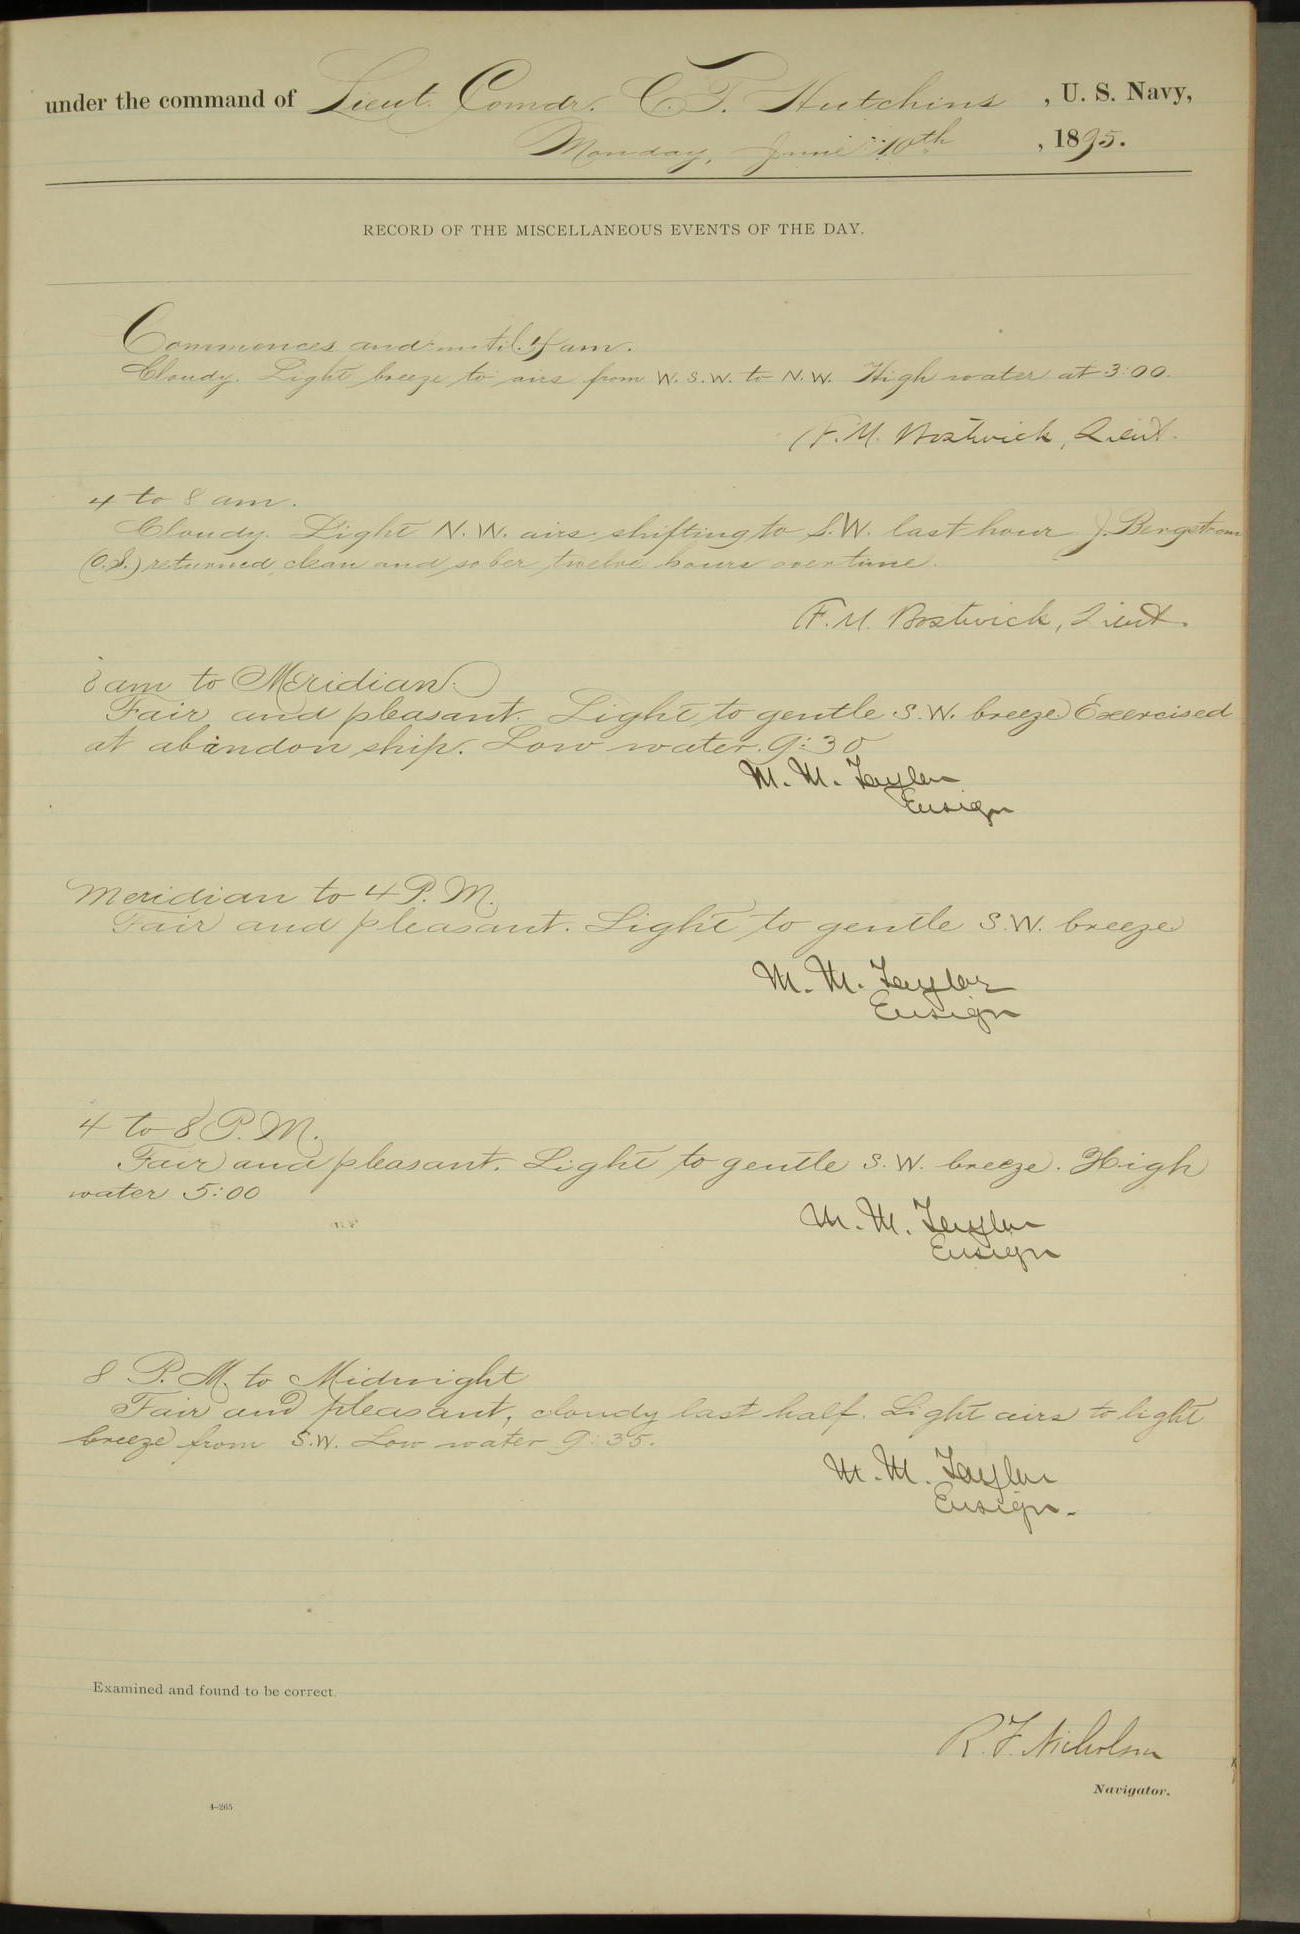 under the command of Lieut. Comdr. C. T. Hutchins, U. S. Navy,
Monday, June 10th, 1895.
RECORD OF THE MISCELLANEOUS EVENTS OF THE DAY.
Commences and until 4 am.
Cloudy. Light breeze to airs from W.S.W. to N.W. High water at 3:00.
F. M. Bostwick, Lieut.
4 to 8 am.
Cloudy. Light N.W. airs shifting to S.W. last hour J. Bergstrom
(O.S.) returned clean and sober twelve hours overtime.
F. M. Bostwick, Lieut.
8 am to Meridian.
Fair and pleasant. Light to gentle S.W. breeze Exercised
at abandon ship. Low water. 9:30
M. M. Taylor
Ensign
Meridian to 4 P.M.
Fair and pleasant. Light to gentle S.W. breeze
M. M. Taylor
Ensign
4 to 8 P.M.
Fair and pleasant. Light to gentle S.W. breeze. High
water 5:00
M. M. Taylor
Ensign
8 P.M. to Midnight
Fair and pleasant, cloudy last half. Light airs to light
breeze from S.W. Low water 9:35.
M. M. Taylor
Ensign.
Examined and found to be correct.
R. F. Nicholson
Navigator.
4-265